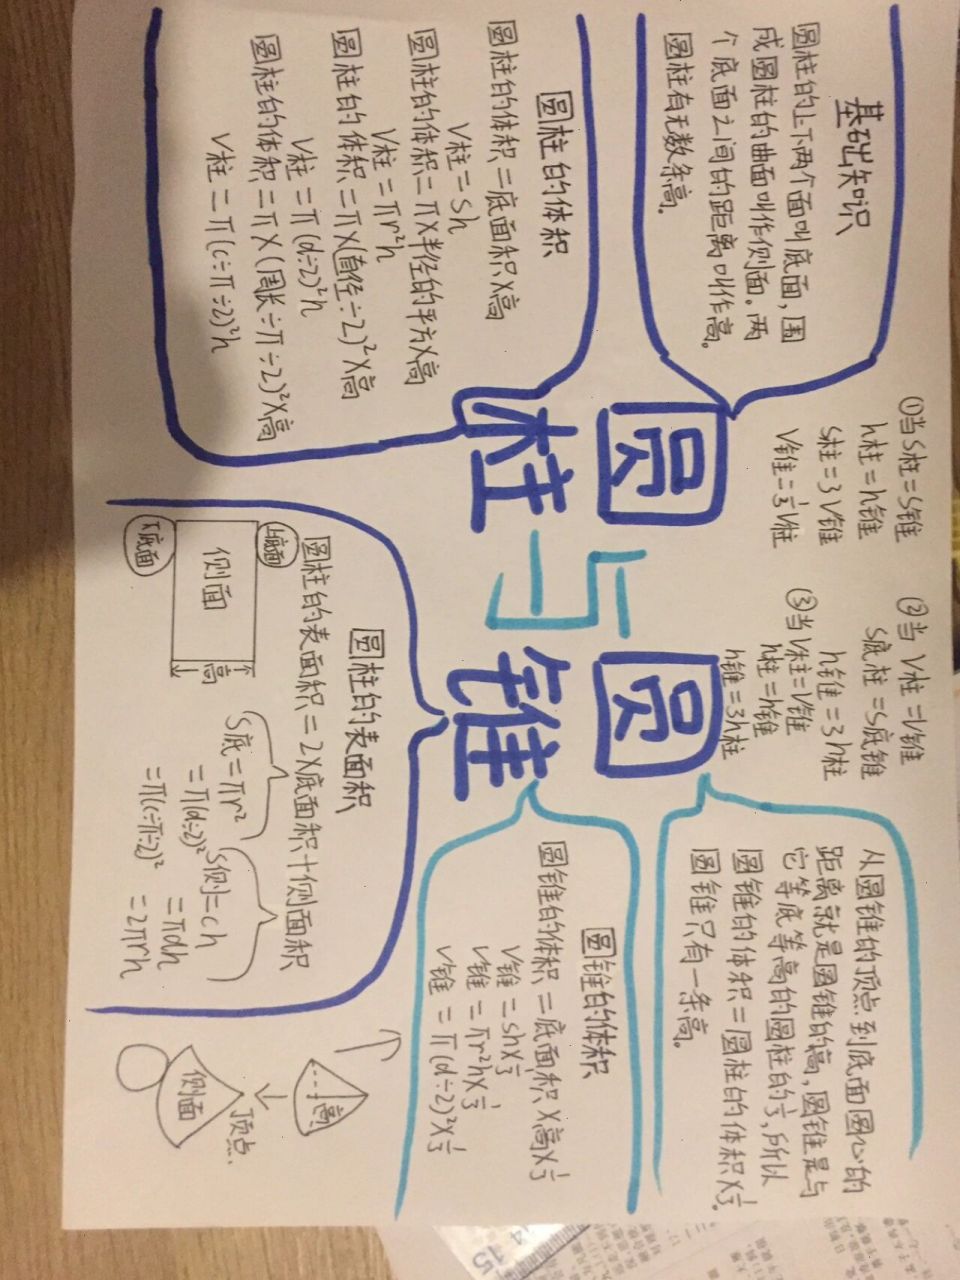 圆柱与圆锥
基础知识
圆柱的上下两个面叫底面,围
成圆柱的曲面叫作侧面。两
个底面之间的距离叫作高。
圆柱有无数条高。
圆柱的体积
圆柱的体积=底面积×高
V柱=sh
圆柱的体积=π×半径的平方×高
V柱=πr²h
圆柱的体积=π×(直径÷2)²×高
V柱=π(d÷2)²h
圆柱的体积=π×(周长÷π÷2)²×高
V柱=π(c÷π÷2)²h
①当S柱=S锥
h柱=h锥
S柱=3V锥
V锥=⅓V柱
②当V柱=V锥
S底柱=S底锥
h锥=3h柱
③当V柱=V锥
h柱=h锥
h锥=3h柱
圆柱的表面积
圆柱的表面积=2×底面积+侧面积
S底=πr²
=π(d÷2)²
=π(c÷π÷2)²
S侧=ch
=πdh
=2πrh
上底面
侧面
高
下底面
从圆锥的顶点到底面圆心的
距离就是圆锥的高,圆锥是与
它等底等高的圆柱的⅓,所以
圆锥的体积=圆柱的体积×⅓。
圆锥只有一条高。
圆锥的体积
圆锥的体积=底面积×高×⅓
V锥=sh×⅓
V锥=πr²h×⅓
V锥=π(d÷2)²×⅓
高
顶点
侧面
15